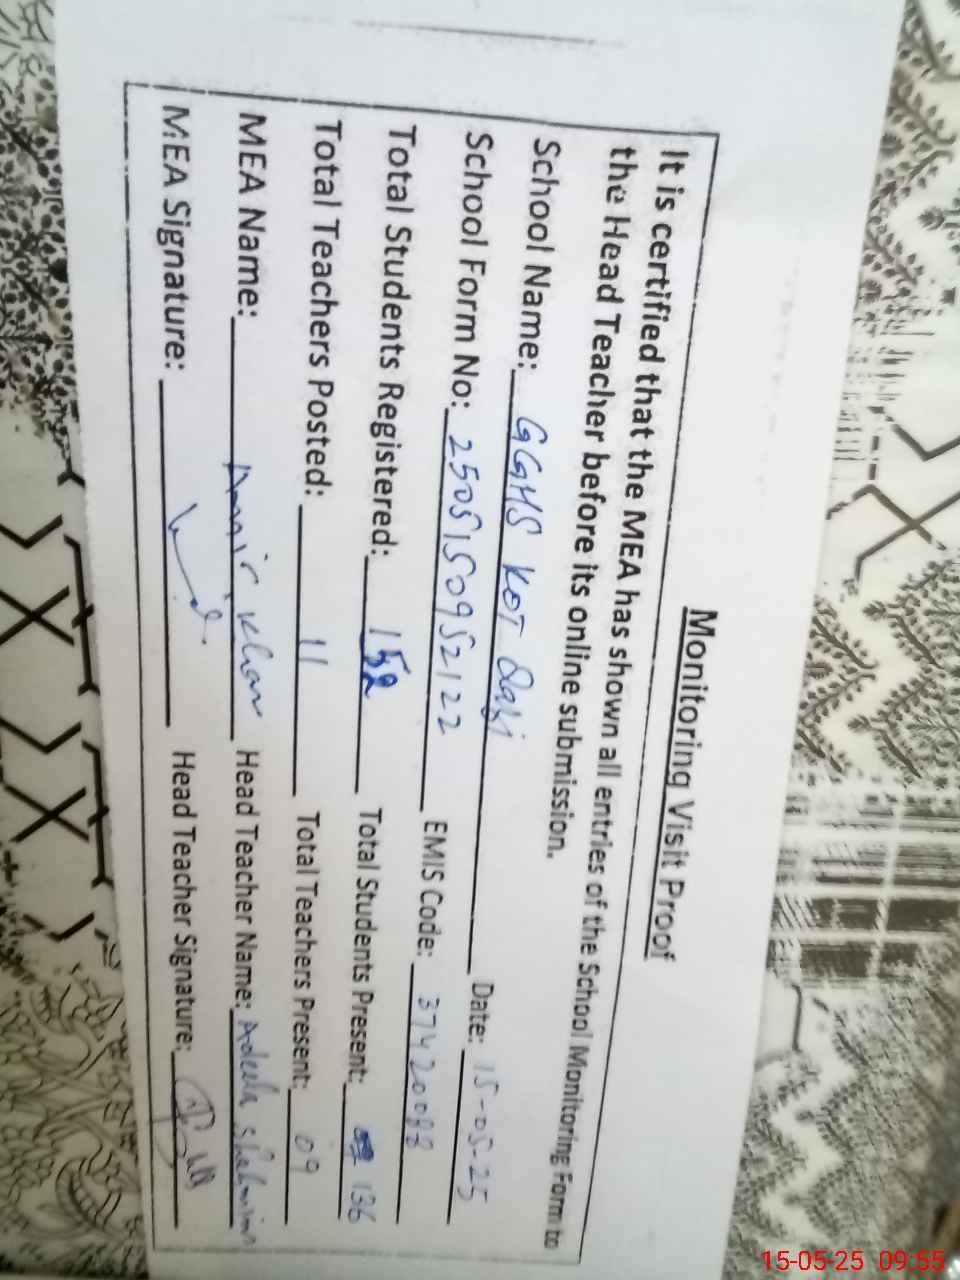 Monitoring Visit Proof
It is certified that the MEA has shown all entries of the School Monitoring Form to
the Head Teacher before its online submission.
School Name: GGHS KOT Date: 15-05-25
School Form No: 2505150952122 EMIS Code: 37420088
Total Students Registered: 152 Total Students Present: 136
Total Teachers Posted: 11 Total Teachers Present: 09
MEA Name: Aamir Khan Head Teacher Name: Adeela
MEA Signature: Head Teacher Signature:
15-05-25 09:55